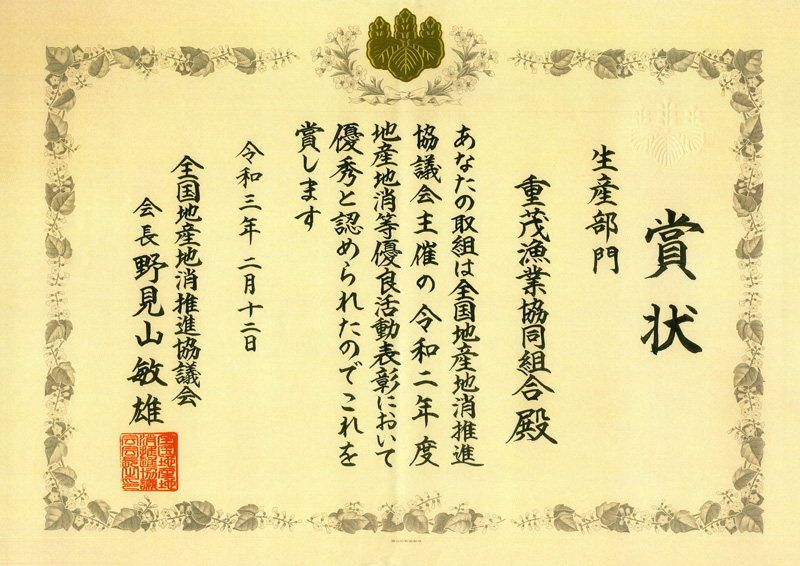 賞状
生産部門
重茂漁業協同組合殿
あなたの取組は全国地産地消推進
協議会主催の令和二年度
地産地消等優良活動表彰において
優秀と認められたのでこれを
賞します
令和三年二月十二日
全国地産地消推進協議会
会長野見山敏雄